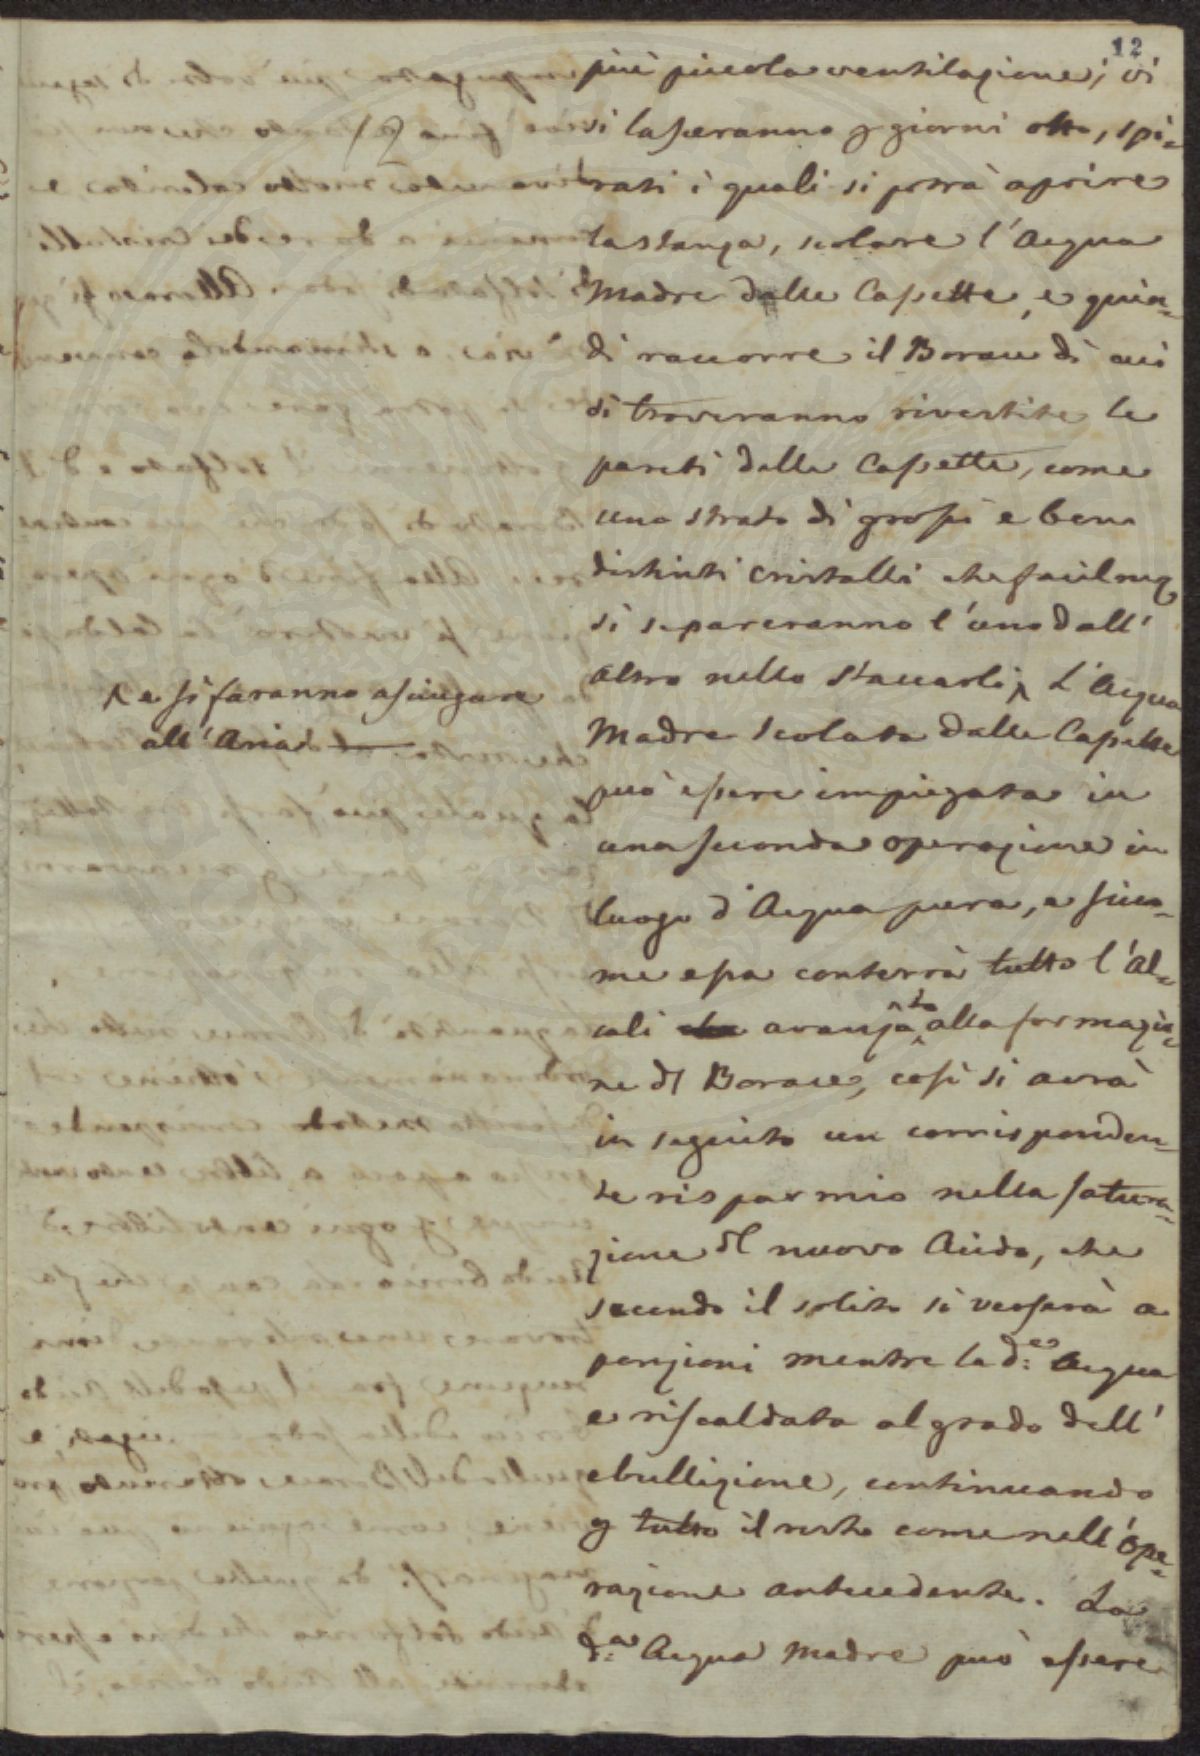 12
12
più piccola ventilazione, vi
si lasceranno p giorni otto, spi-
rati i quali si potrà aprire
la stanza, scolare l'Acqua
Madre dalle Cassette, e quin-
di raccorre il Borace di cui
si troveranno rivestite le
pareti delle Cassette, come
uno strato di grossi e ben
distinti cristalli che facilme
si separeranno l'uno dall'
altro nello staccarli ^ L'Acqua
^ e si faranno asciugare
all'Aria
Madre scolata dalle Cassette
può essere impiegata in
una seconda operazione in
luogo d'Acqua pura, e sicco-
me essa conterrà tutto l'Al-
cali avanzato alla formazio-
ne dl Borace, così si avrà
in seguito un corrisponden-
te risparmio nella satura-
zione dl nuovo Acido, che
secondo il solito si verserà a
porzioni mentre la d: Acqua
e riscaldata al grado dell'
ebullizione, continuando
p tutto il resto come nell'Ope-
razione antecedente. La
d:a Acqua Madre può essere